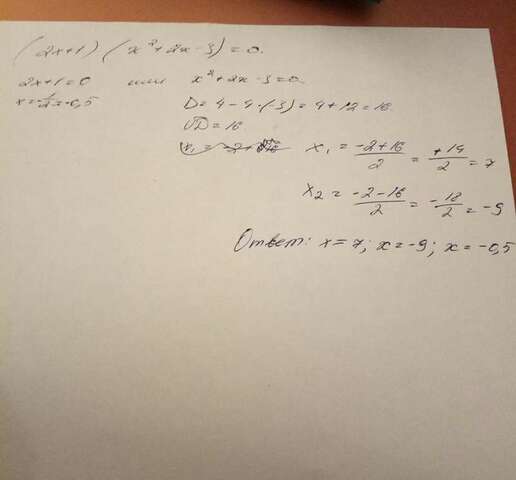 (2x+1) (x²+2x-3)=0.
2x+1=0 или x²+2x-3=0.
x=-1/2=-0,5 D=4-4·(-3)=4+12=16
√D=16
x₁=(-2+16)/2=+14/2=7
x₂=(-2-16)/2=-18/2=-9
Ответ: x=7; x=-9; x=-0,5